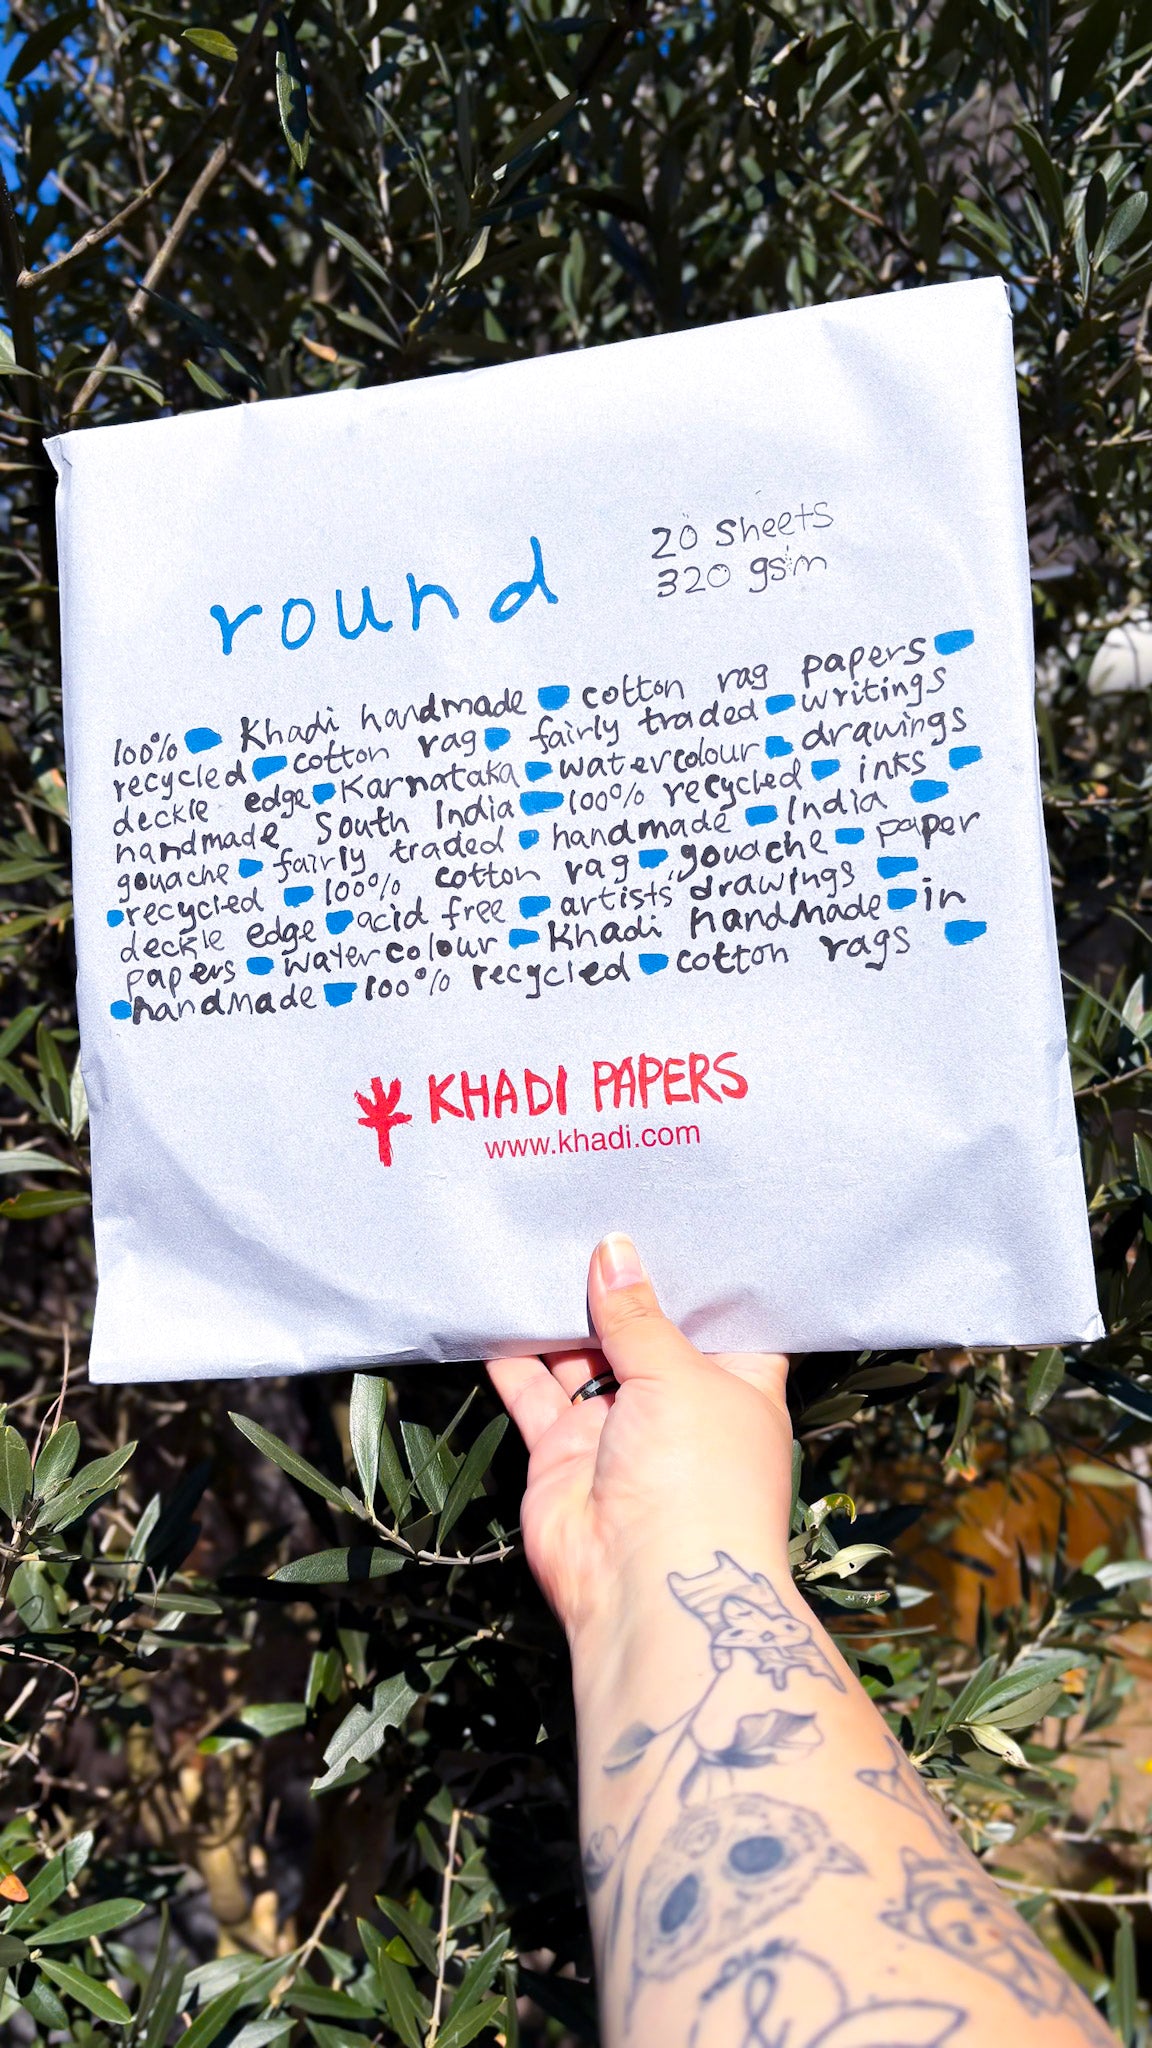 round
20 sheets
320 gsm
100% Khadi handmade cotton rag papers
recycled cotton rag fairly traded writings
deckle edge Karnataka watercolour drawings
handmade South India 100% recycled inks
gouache fairly traded handmade India
recycled 100% cotton rag gouache paper
deckle edge acid free artists' drawings
papers watercolour Khadi handmade in
handmade 100% recycled cotton rags
KHADI PAPERS
www.khadi.com